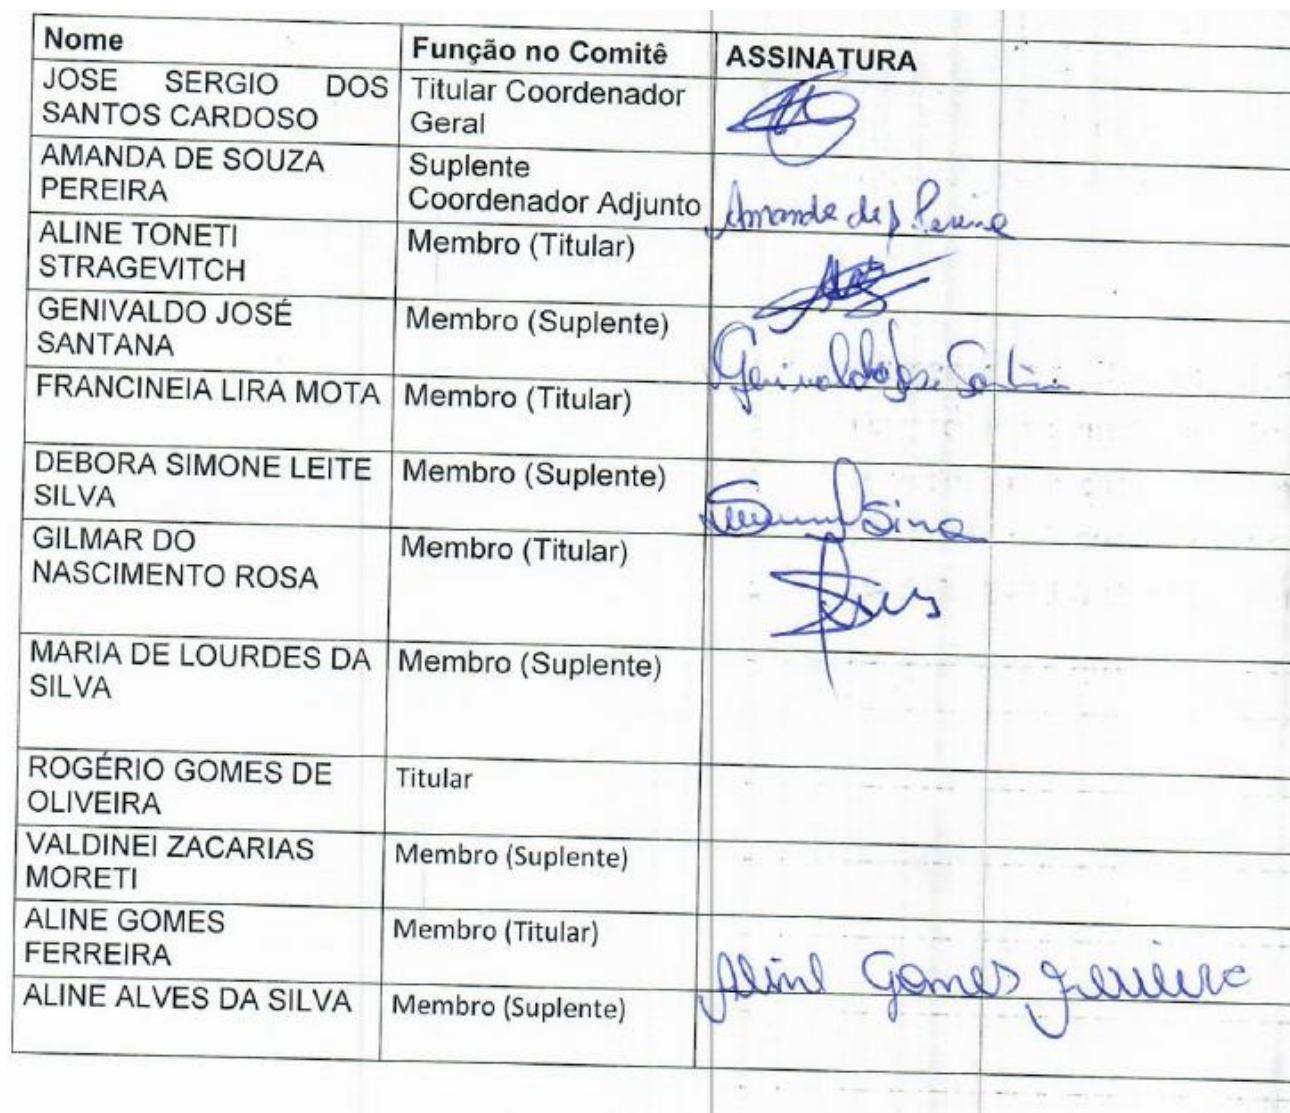 Nome Função no Comitê ASSINATURA
JOSE SERGIO DOS
SANTOS CARDOSO
Titular Coordenador
Geral
AMANDA DE SOUZA
PEREIRA
Suplente
Coordenador Adjunto
Amanda de
ALINE TONETI
STRAGEVITCH
Membro (Titular)
GENIVALDO JOSÉ
SANTANA
Membro (Suplente)
Genivaldo José
FRANCINEIA LIRA MOTA
Membro (Titular)
DEBORA SIMONE LEITE
SILVA
Membro (Suplente)
GILMAR DO
NASCIMENTO ROSA
Membro (Titular)
MARIA DE LOURDES DA
SILVA
Membro (Suplente)
ROGÉRIO GOMES DE
OLIVEIRA
Titular
VALDINEI ZACARIAS
MORETI
Membro (Suplente)
ALINE GOMES
FERREIRA
Membro (Titular)
Aline Gomes Ferreira
ALINE ALVES DA SILVA
Membro (Suplente)